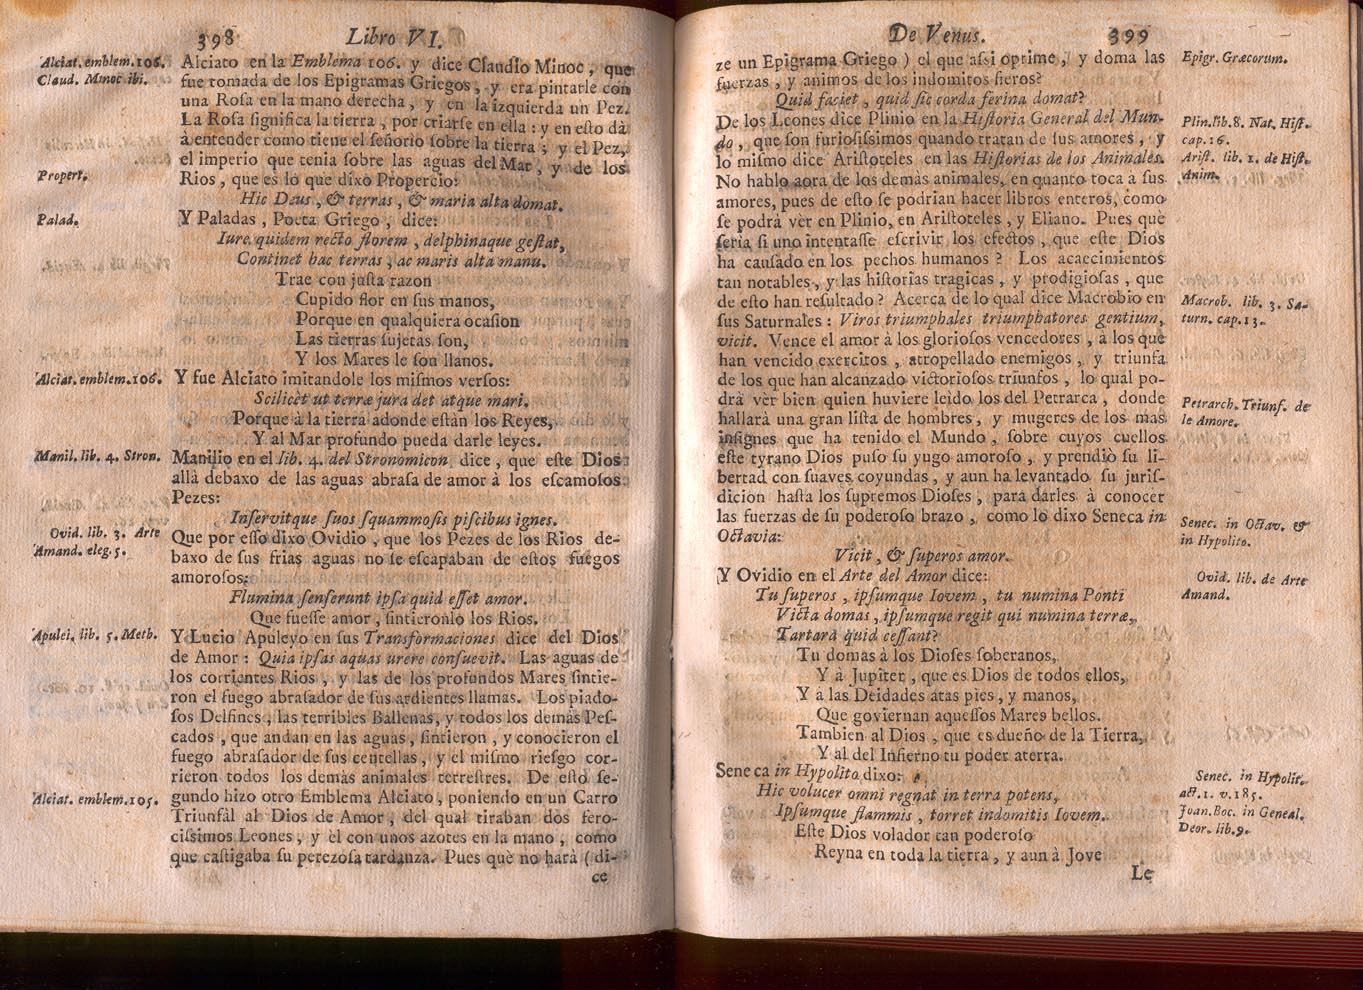 398 Libro VI.
Alciat. emblem. 106.
Claud. Minoc ibi.
Propert.
Palad.
Alciat. emblem. 106.
Manil. lib. 4. Stron.
Ovid. lib. 3. Arte
Amand. eleg. 5.
Apulei. lib. 5. Meth.
Alciat. emblem. 105.
Alciato en la Emblema 106. y dice Claudio Minoc, que
fue tomada de los Epigramas Griegos, y era pintarle con
una Rosa en la mano derecha, y en la izquierda un Pez.
La Rosa significa la tierra, por criarse en ella: y en esto dà
à entender como tiene el señorio sobre la tierra; y el Pez,
el imperio que tenia sobre las aguas del Mar, y de los
Rios, que es lo que dixo Propercio:
Hic Deus, & terras, & maria alta domat.
Y Paladas, Poeta Griego, dice:
Iure quidem recto florem, delphinaque gestat,
Continet hac terras, ac maris alta manu.
Trae con justa razon
Cupido flor en sus manos,
Porque en qualquiera ocasion
Las tierras sujetas son,
Y los Mares le son llanos.
Y fue Alciato imitandole los mismos versos:
Scilicèt ut terræ jura det atque mari.
Porque à la tierra adonde estàn los Reyes,
Y al Mar profundo pueda darle leyes.
Manilio en el lib. 4. del Stronomicon dice, que este Dios
allà debaxo de las aguas abrasa de amor à los escamosos
Pezes:
Inservitque suos squammosis piscibus ignes.
Que por esso dixo Ovidio, que los Pezes de los Rios de-
baxo de sus frias aguas no se escapaban de estos fuegos
amorosos:
Flumina senserunt ipsa quid esset amor.
Que fuesse amor, sintieronlo los Rios.
Y Lucio Apuleyo en sus Transformaciones dice del Dios
de Amor: Quia ipsas aquas urere consuevit. Las aguas de
los corrientes Rios, y las de los profundos Mares sintie-
ron el fuego abrasador de sus ardientes llamas. Los piado-
sos Delfines, las terribles Ballenas, y todos los demàs Pes-
cados, que andan en las aguas, sintieron, y conocieron el
fuego abrasador de sus centellas, y el mismo riesgo cor-
rieron todos los demàs animales terrestres. De esto se-
gundo hizo otro Emblema Alciato, poniendo en un Carro
Triunfàl al Dios de Amor, del qual tiraban dos fero-
cissimos Leones, y èl con unos azotes en la mano, como
que castigaba su perezosa tardanza. Pues què no harà (di-
ce
De Venus. 399
ze un Epigrama Griego) el que assi oprime, y doma las
fuerzas, y animos de los indomitos fieros?
Quid faciet, quid sic corda ferina domat?
De los Leones dice Plinio en la Historia General del Mun-
do, que son furiosissimos quando tratan de sus amores, y
lo mismo dice Aristoteles en las Historias de los Animales.
No hablo aora de los demàs animales, en quanto toca à sus
amores, pues de esto se podrian hacer libros enteros, como
se podrà vèr en Plinio, en Aristoteles, y Eliano. Pues què
seria si uno intentasse escrivir los efectos, que este Dios
ha causado en los pechos humanos? Los acaecimientos
tan notables, y las historias tragicas, y prodigiosas, que
de esto han resultado? Acerca de lo qual dice Macrobio en
sus Saturnales: Viros triumphales triumphatores gentium,
vicit. Vence el amor à los gloriosos vencedores, à los que
han vencido exercitos, atropellado enemigos, y triunfa
de los que han alcanzado victoriosos triunfos, lo qual po-
drà vèr bien quien huviere leìdo los del Petrarca, donde
hallarà una gran lista de hombres, y mugeres de los mas
insignes que ha tenido el Mundo, sobre cuyos cuellos
este tyrano Dios puso su yugo amoroso, y prendiò su li-
bertad con suaves coyundas, y aun ha levantado su juris-
dicion hasta los supremos Dioses, para darles à conocer
las fuerzas de su poderoso brazo, como lo dixo Seneca in
Octavia:
Vicit, & superos amor.
Y Ovidio en el Arte del Amor dice:
Tu superos, ipsumque Iovem, tu numina Ponti
Victa domas, ipsumque regit qui numina terræ,
Tartarà quid cessant?
Tu domas à los Dioses soberanos,
Y à Jupiter, que es Dios de todos ellos,
Y à las Deidades atas pies, y manos,
Que goviernan aquessos Mares bellos.
Tambien al Dios, que es dueño de la Tierra,
Y al del Infierno tu poder aterra.
Seneca in Hypolito dixo:
Hic volucer omni regnat in terra potens,
Ipsumque flammis, torret indomitis Iovem.
Este Dios volador tan poderoso
Reyna en toda la tierra, y aun à Jove
Le
Epigr. Græcorum.
Plin. lib. 8. Nat. Hist.
cap. 16.
Arist. lib. 1. de Hist.
Anim.
Macrob. lib. 3. Sa-
turn. cap. 13.
Petrarch. Triunf. de
le Amore.
Senec. in Octav. &
in Hypolito.
Ovid. lib. de Arte
Amand.
Senec. in Hypolit.
act. 1. v. 185.
Joan. Boc. in Geneal.
Deor. lib. 9.